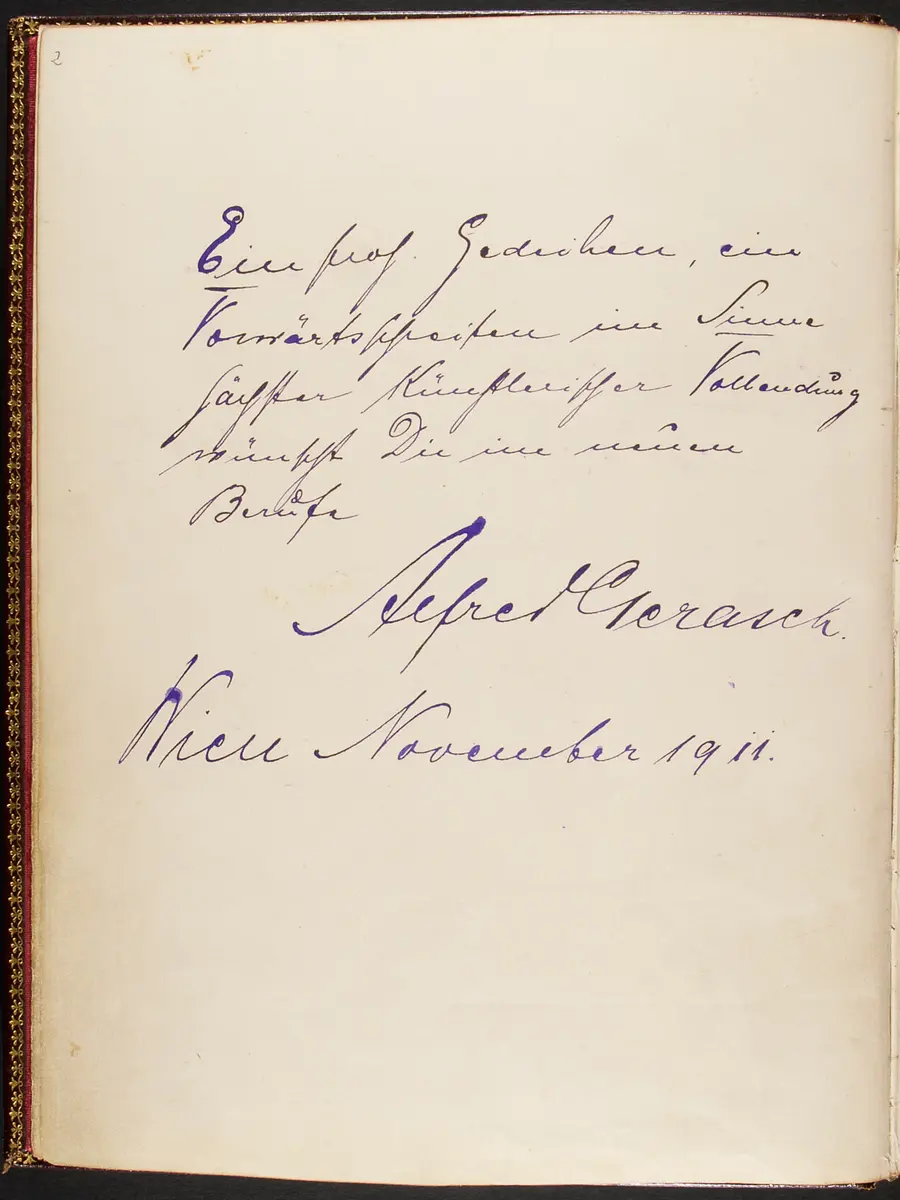 2
Ein frohes Gedeihen, ein
Vorwärtsschreiten im Sinne
höchster künstlerischer Vollendung
wünscht Dir im neuen
Berufe
Alfred Gerasch.
Wien November 1911.